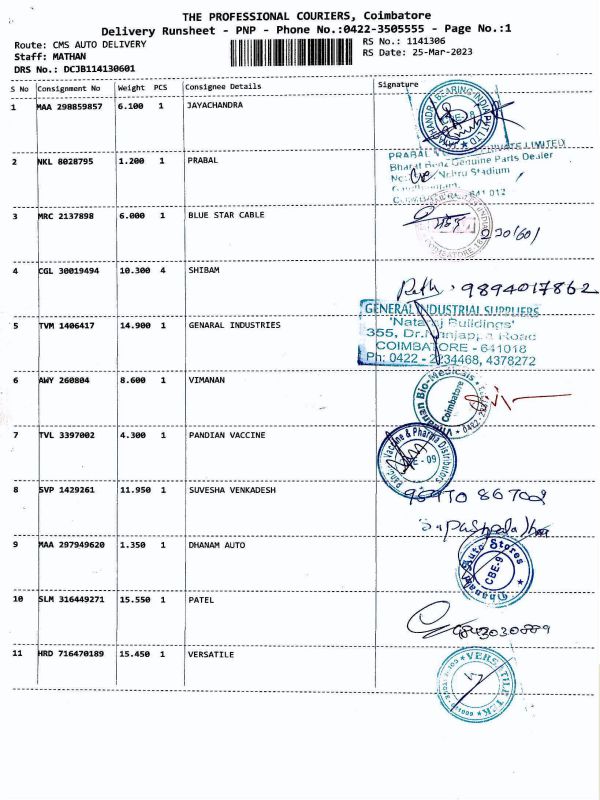 THE PROFESSIONAL COURIERS, Coimbatore
Delivery Runsheet - PNP - Phone No.:0422-3505555 - Page No.:1
Route: CMS AUTO DELIVERY
RS No.: 1141306
Staff: MATHAN
RS Date: 25-Mar-2023
DRS No.: DCJB114130601
S No Consignment No Weight PCS Consignee Details Signature
1 MAA 298859857 6.100 1 JAYACHANDRA
2 NKL 8028795 1.200 1 PRABAL
PRABAL PRIVATE LIMITED
Bharat Benz Genuine Parts Dealer
Nehru Stadium
641 012
3 MRC 2137898 6.000 1 BLUE STAR CABLE
COIMBATORE
4 CGL 30019494 10.300 4 SHIBAM
9894017862
GENERAL INDUSTRIAL SUPPLIERS
'Nataraj Buildings'
5 TVM 1406417 14.900 1 GENARAL INDUSTRIES
355, Dr.Nanjappa Road
COIMBATORE - 641018
Ph: 0422 - 2234468, 4378272
6 AWY 260804 8.600 1 VIMANAN
Vimanan Bio-Medicals
Coimbatore
7 TVL 3397002 4.300 1 PANDIAN VACCINE
Vaccine & Pharma Distributors
8 SVP 1429261 11.950 1 SUVESHA VENKADESH
9 MAA 297949620 1.350 1 DHANAM AUTO
Dhanam Auto Stores
CBE-9
10 SLM 316449271 15.550 1 PATEL
9842030889
11 HRD 716470189 15.450 1 VERSATILE
VERSATILE TEK